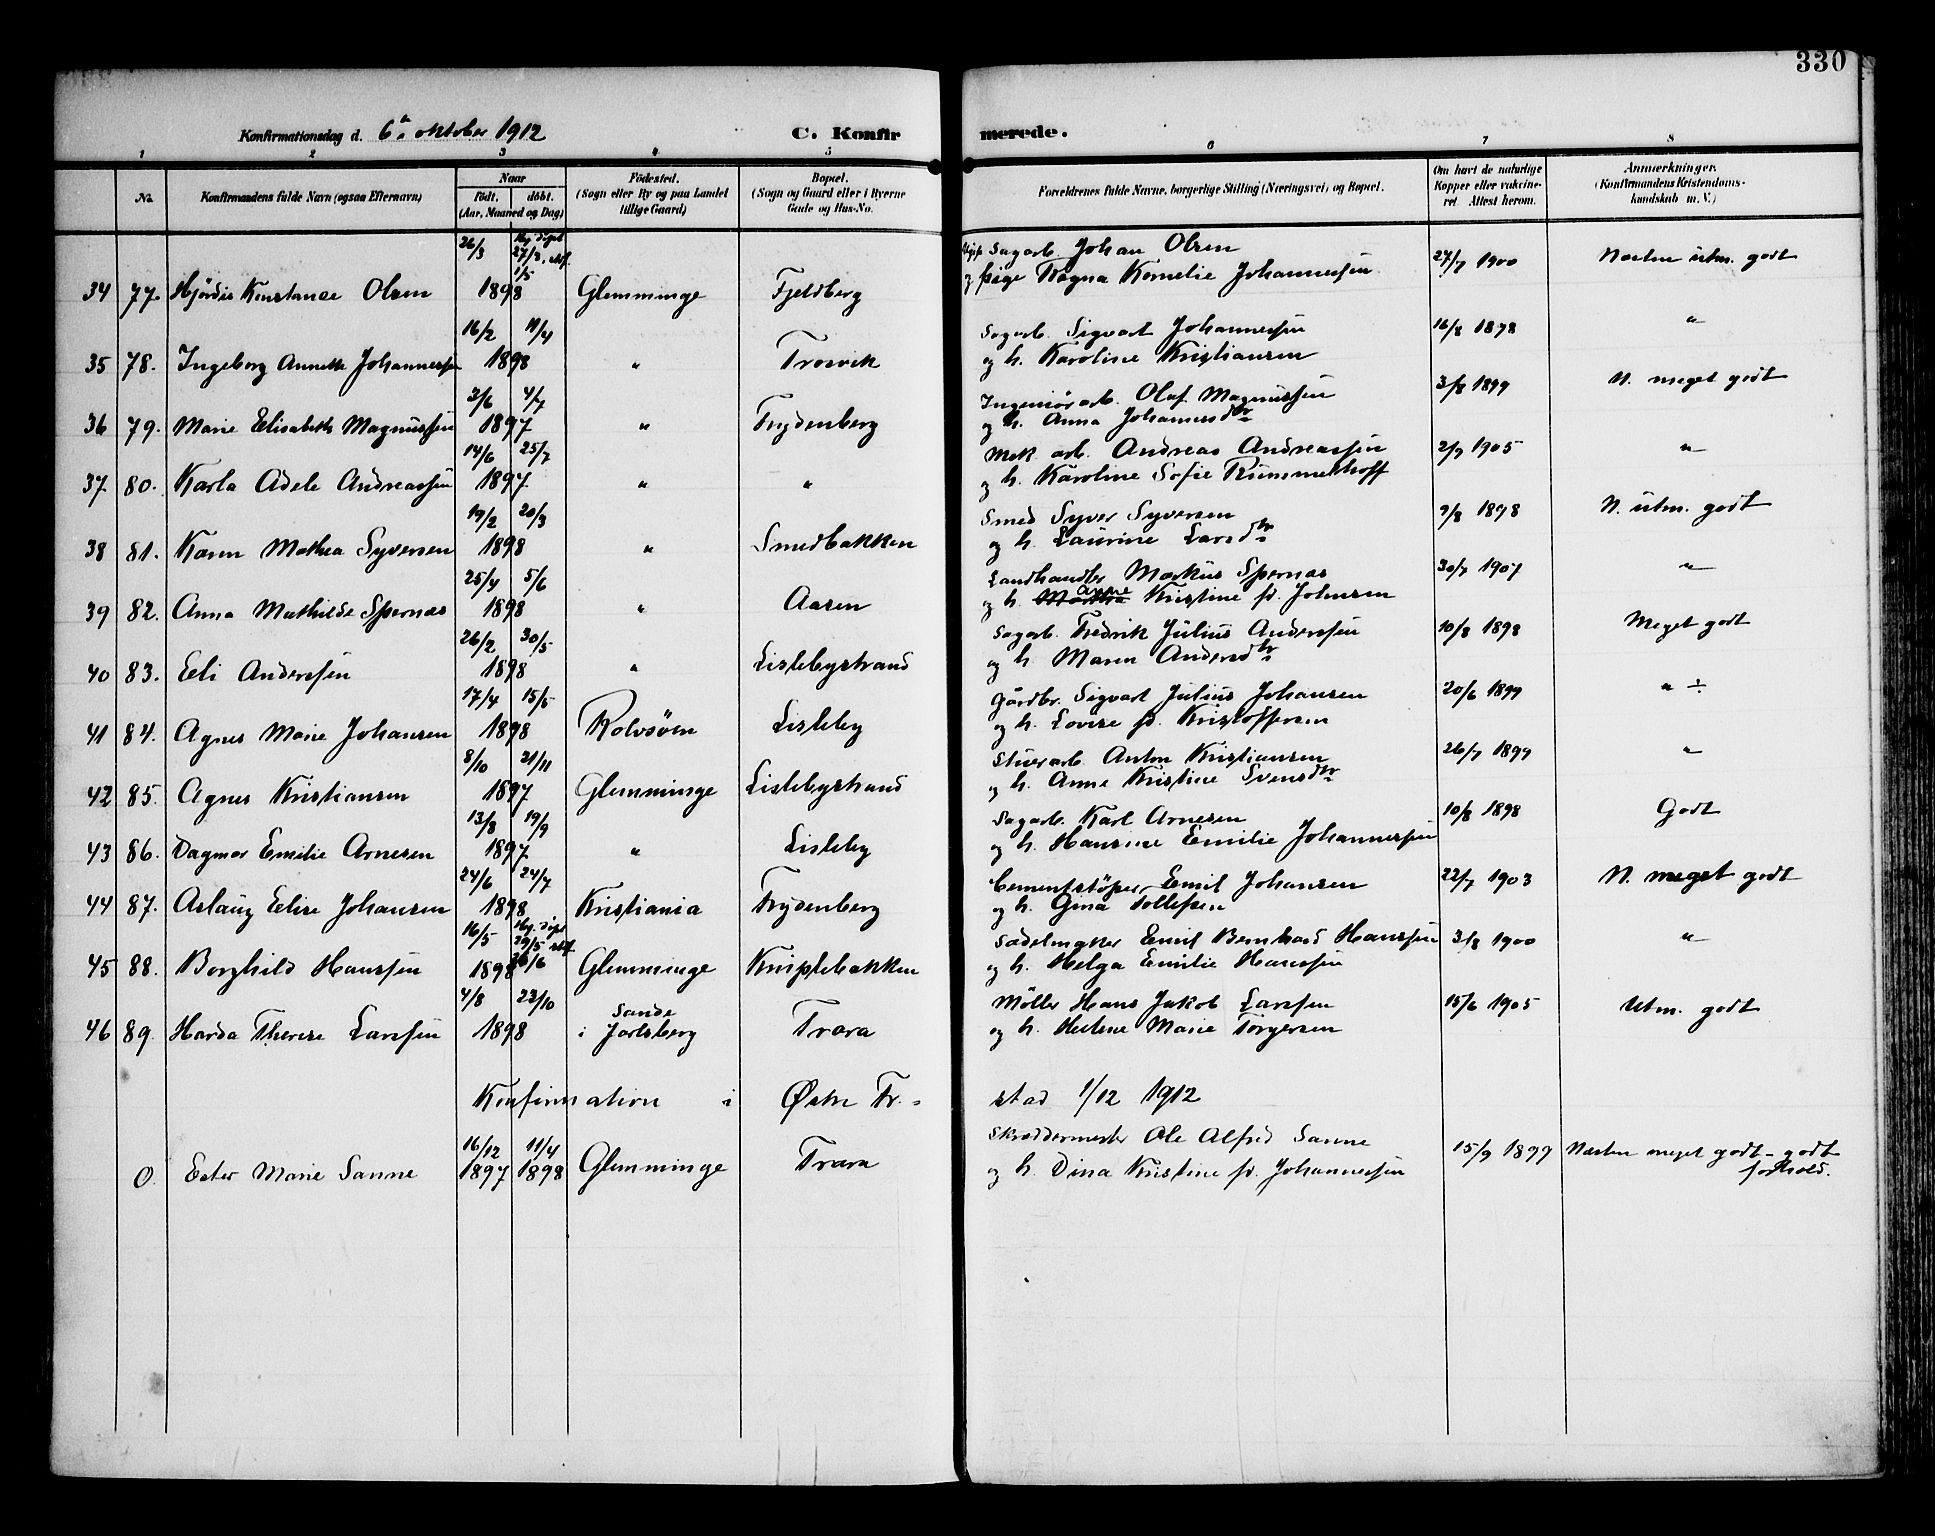 330
Konfirmationsdag d. 6te oktober 1912 C. Konfirmerede.
1 2 3 4 5 6 7 8
No. Konfirmandens fulde Navn (ogsaa Efternavn) Naar födt. döbt. (Aar, Maaned og Dag) Födested. (Sogn eller By og paa Landet tillige Gaard) Bopæl. (Sogn og Gaard eller i Byerne Gade og Hus-No. Forældrenes fulde Navne, borgerlige Stilling (Næringsvei) og Bopæl. Om havt de naturlige Kopper eller vakcineret Attest herom. Anmærkninger. (Konfirmandens Kristendomskundskab m. V.)
26/3 Hj. döpt 27/3, 1/5 Ugift Sagarb. Johan Olsen 27/7 1900 Næsten utm. godt
34 77. Hjördis Konstanse Olsen 1898 Glemminge Fjeldberg og pige Ragna Kornelie Johannessen
16/2 11/4 Sagarb. Sigvart Johannessen 16/8 1898 "
35 78. Ingeborg Annette Johannessen 1898 " Trosvik og h. Karoline Kristiansen
2/6 4/7 Ingeniörarb. Olaf Magnussen 3/8 1899 N. meget godt
36 79. Marie Elisabeth Magnussen 1897 " Frydenberg og h. Anna Johannesdtr
14/6 25/7 Mek. arb. Andreas Andreassen 2/9 1905 "
37 80. Karla Adele Andreassen 1897 " " og h. Karoline Sofie Rummelhoff
19/2 20/3 Smed Syver Syversen 9/8 1898 N. utm. godt
38 81. Karen Mathea Syversen 1898 " Smedbakken og h. Laurine Larsdtr
25/4 5/6 Landhandler Markus Spernæs 30/7 1907 "
39 82. Anna Mathilde Spernæs 1898 " Aasen og h. Anne Kristine f. Johnsen
26/2 30/5 Sagarb. Fredrik Julius Anderssen 10/8 1898 Meget godt
40 83. Eli Anderssen 1898 " Lislebystrand og h. Maren Andersdtr
17/4 15/5 Gårdbr. Sigvart Julius Johansen 20/6 1899 " ÷
41 84. Agnes Marie Johansen 1898 Rolvsöen Lisleby og h. Lovise f. Kristoffersen
8/10 21/11 Stuerarb. Anton Kristiansen 26/7 1899 "
42 85. Agnes Kristiansen 1897 Glemminge Lislebystrand og h. Anne Kristine Svensdtr
13/8 19/9 Sagarb. Karl Arnesen 10/8 1898 Godt
43 86. Dagmar Emilie Arnesen 1897 " Lisleby og h. Hansine Emilie Johannessen
24/6 24/7 Cementstöper Emil Johansen 22/7 1903 N. meget godt
44 87. Aslaug Elise Johansen 1898 Kristiania Frydenberg og h. Gina Tollefsen
16/5 Hj. döpt 29/5 26/6 Sadelmaker Emil Bernhard Hanssen 3/8 1900 "
45 88. Borghild Hanssen 1898 Glemminge Kniplebakken og h. Helga Emilie Hanssen
4/8 23/10 Sande Möller Hans Jakob Larssen 15/6 1905 Utm. godt
46 89. Harda Therese Larssen 1898 i Jarlsberg Trara og h. Helene Marie Torgersen
Konfirmation i Østre Fr.-stad 1/12 1912
16/12 11/4 Skræddermester Ole Alfred Sanne 15/9 1899 Næsten meget godt - godt
0. Ester Marie Sanne 1897 1898 Glemminge Trara og h. Dina Kristine f. Johannessen forhold.